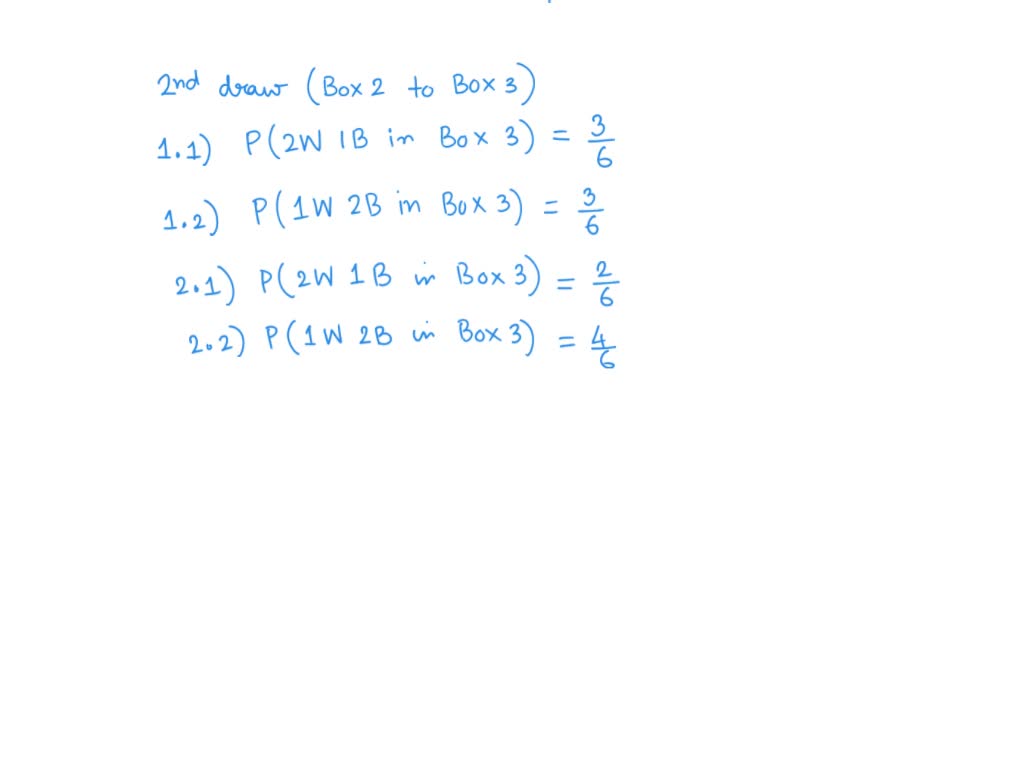 2nd draw (Box 2 to Box 3)
1.1) P(2W 1B in Box 3) = 3/6
1.2) P(1W 2B in Box 3) = 3/6
2.1) P(2W 1B in Box 3) = 2/6
2.2) P(1W 2B in Box 3) = 4/6